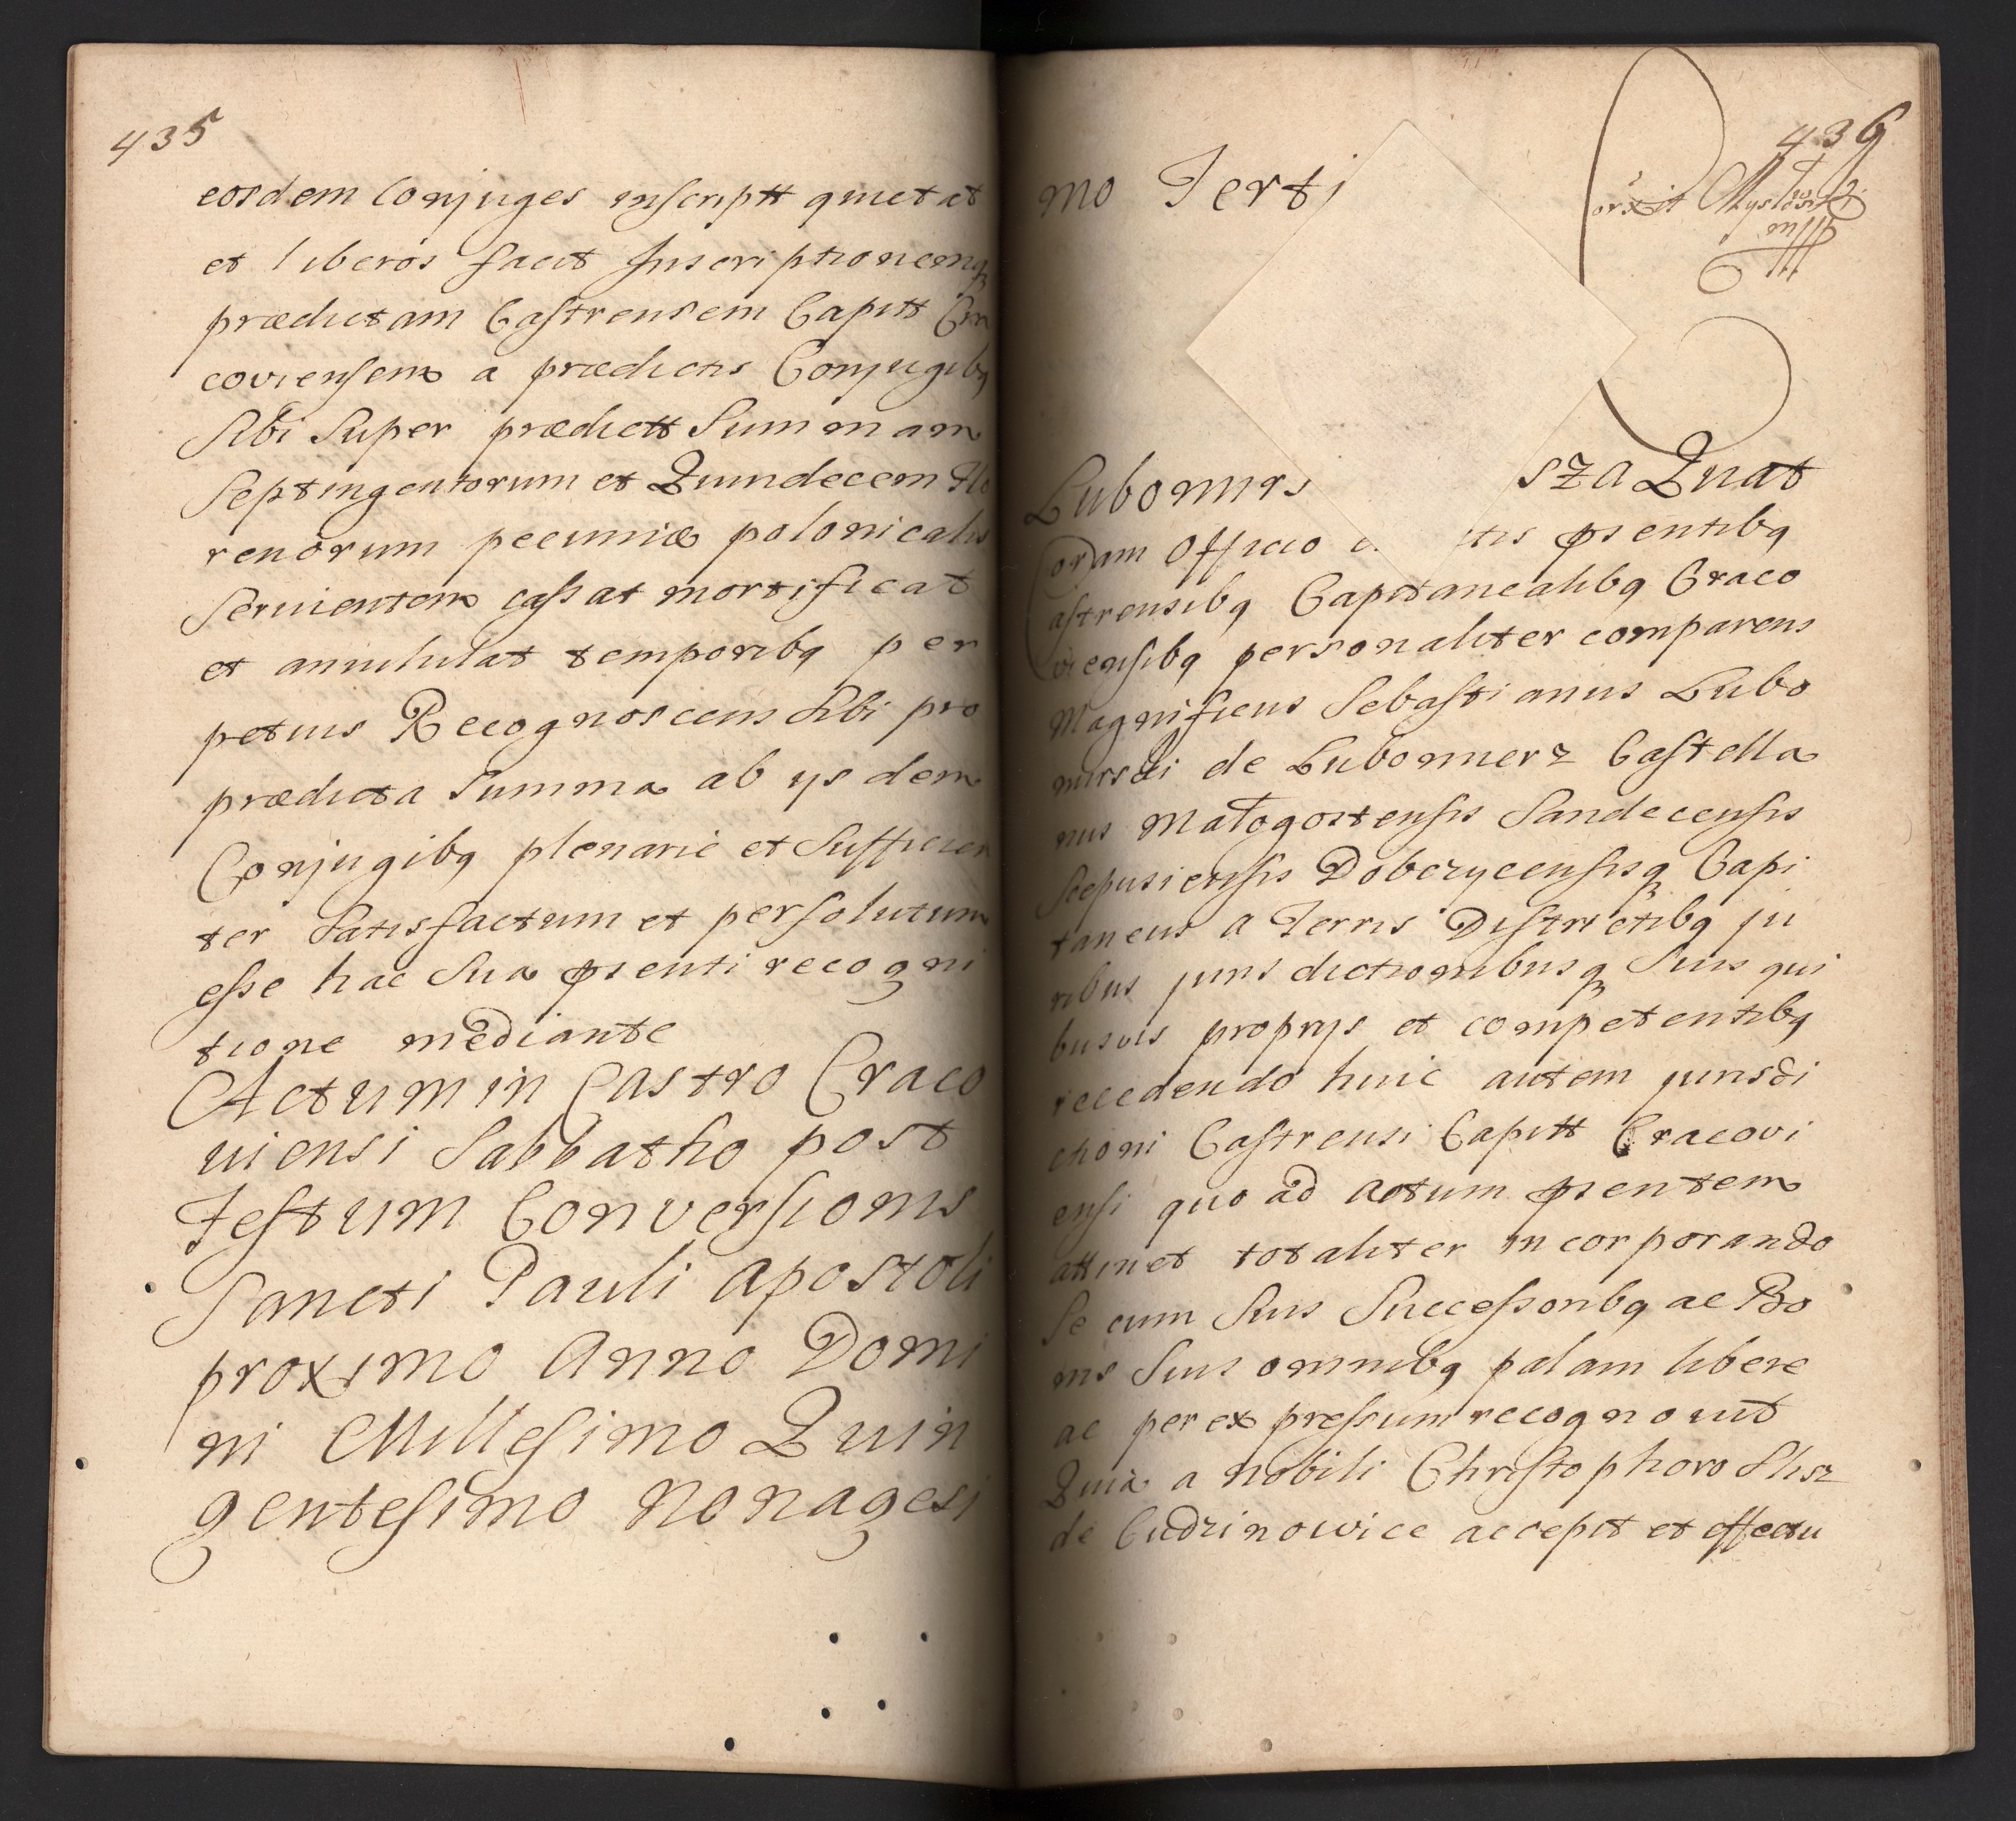 435
eosdem Conjuges inscriptt quietat
et liberos facit Inscriptionemq
prædictam Castrensem Capitt Cra
coviensem a prædictis Conjugibq
Sibi Super prædictt Summam
Septingentorum et Quindecem Flo
renorum pecuniæ polonicalis
Servientem cassat mortificat
et annihilat temporibq per
petuis Recognoscens Sibi pro
prædicta Summa ab ysdem
Conjugibq plenarie et Sufficien
ter Satisfactum et persolutum
esse hac Sua pnsenti recogni
tione mediante
Actum in Castro Craco
viensi Sabbatho post
Festum Conversionis
Sancti Pauli Apostoli
proximo Anno Domi
ni Millesimo Quin
gentesimo Nonagesi
436
mo Terti
Lubomirs sza Quat
Coram Officio et tis pnsentibq
Castrensibq Capitanealibq Craco
viensibq personaliter comparens
Magnificus Sebastianus Lubo
mirski de Lubomierz Castella
nus Małogostensis Sandecensis
Scepusiensis Dobczycensisq Capi
taneus a Terris Districtibq ju
ribus jurisdictionibusq Suis qui
busvis proprys et competentibq
recedendo huic autem jurisdi
ctioni Castrensi Capitt Cracovi
ensi quo ad Actum pnsentem
attinet totaliter incorporando
Se cum Suis Successoribq ac Bo
nis Suis omnibq palam libere
ac per expressum recognovit
Quia a Nobili Christophoro Slisz
de Cudzinowice accepit et effectu